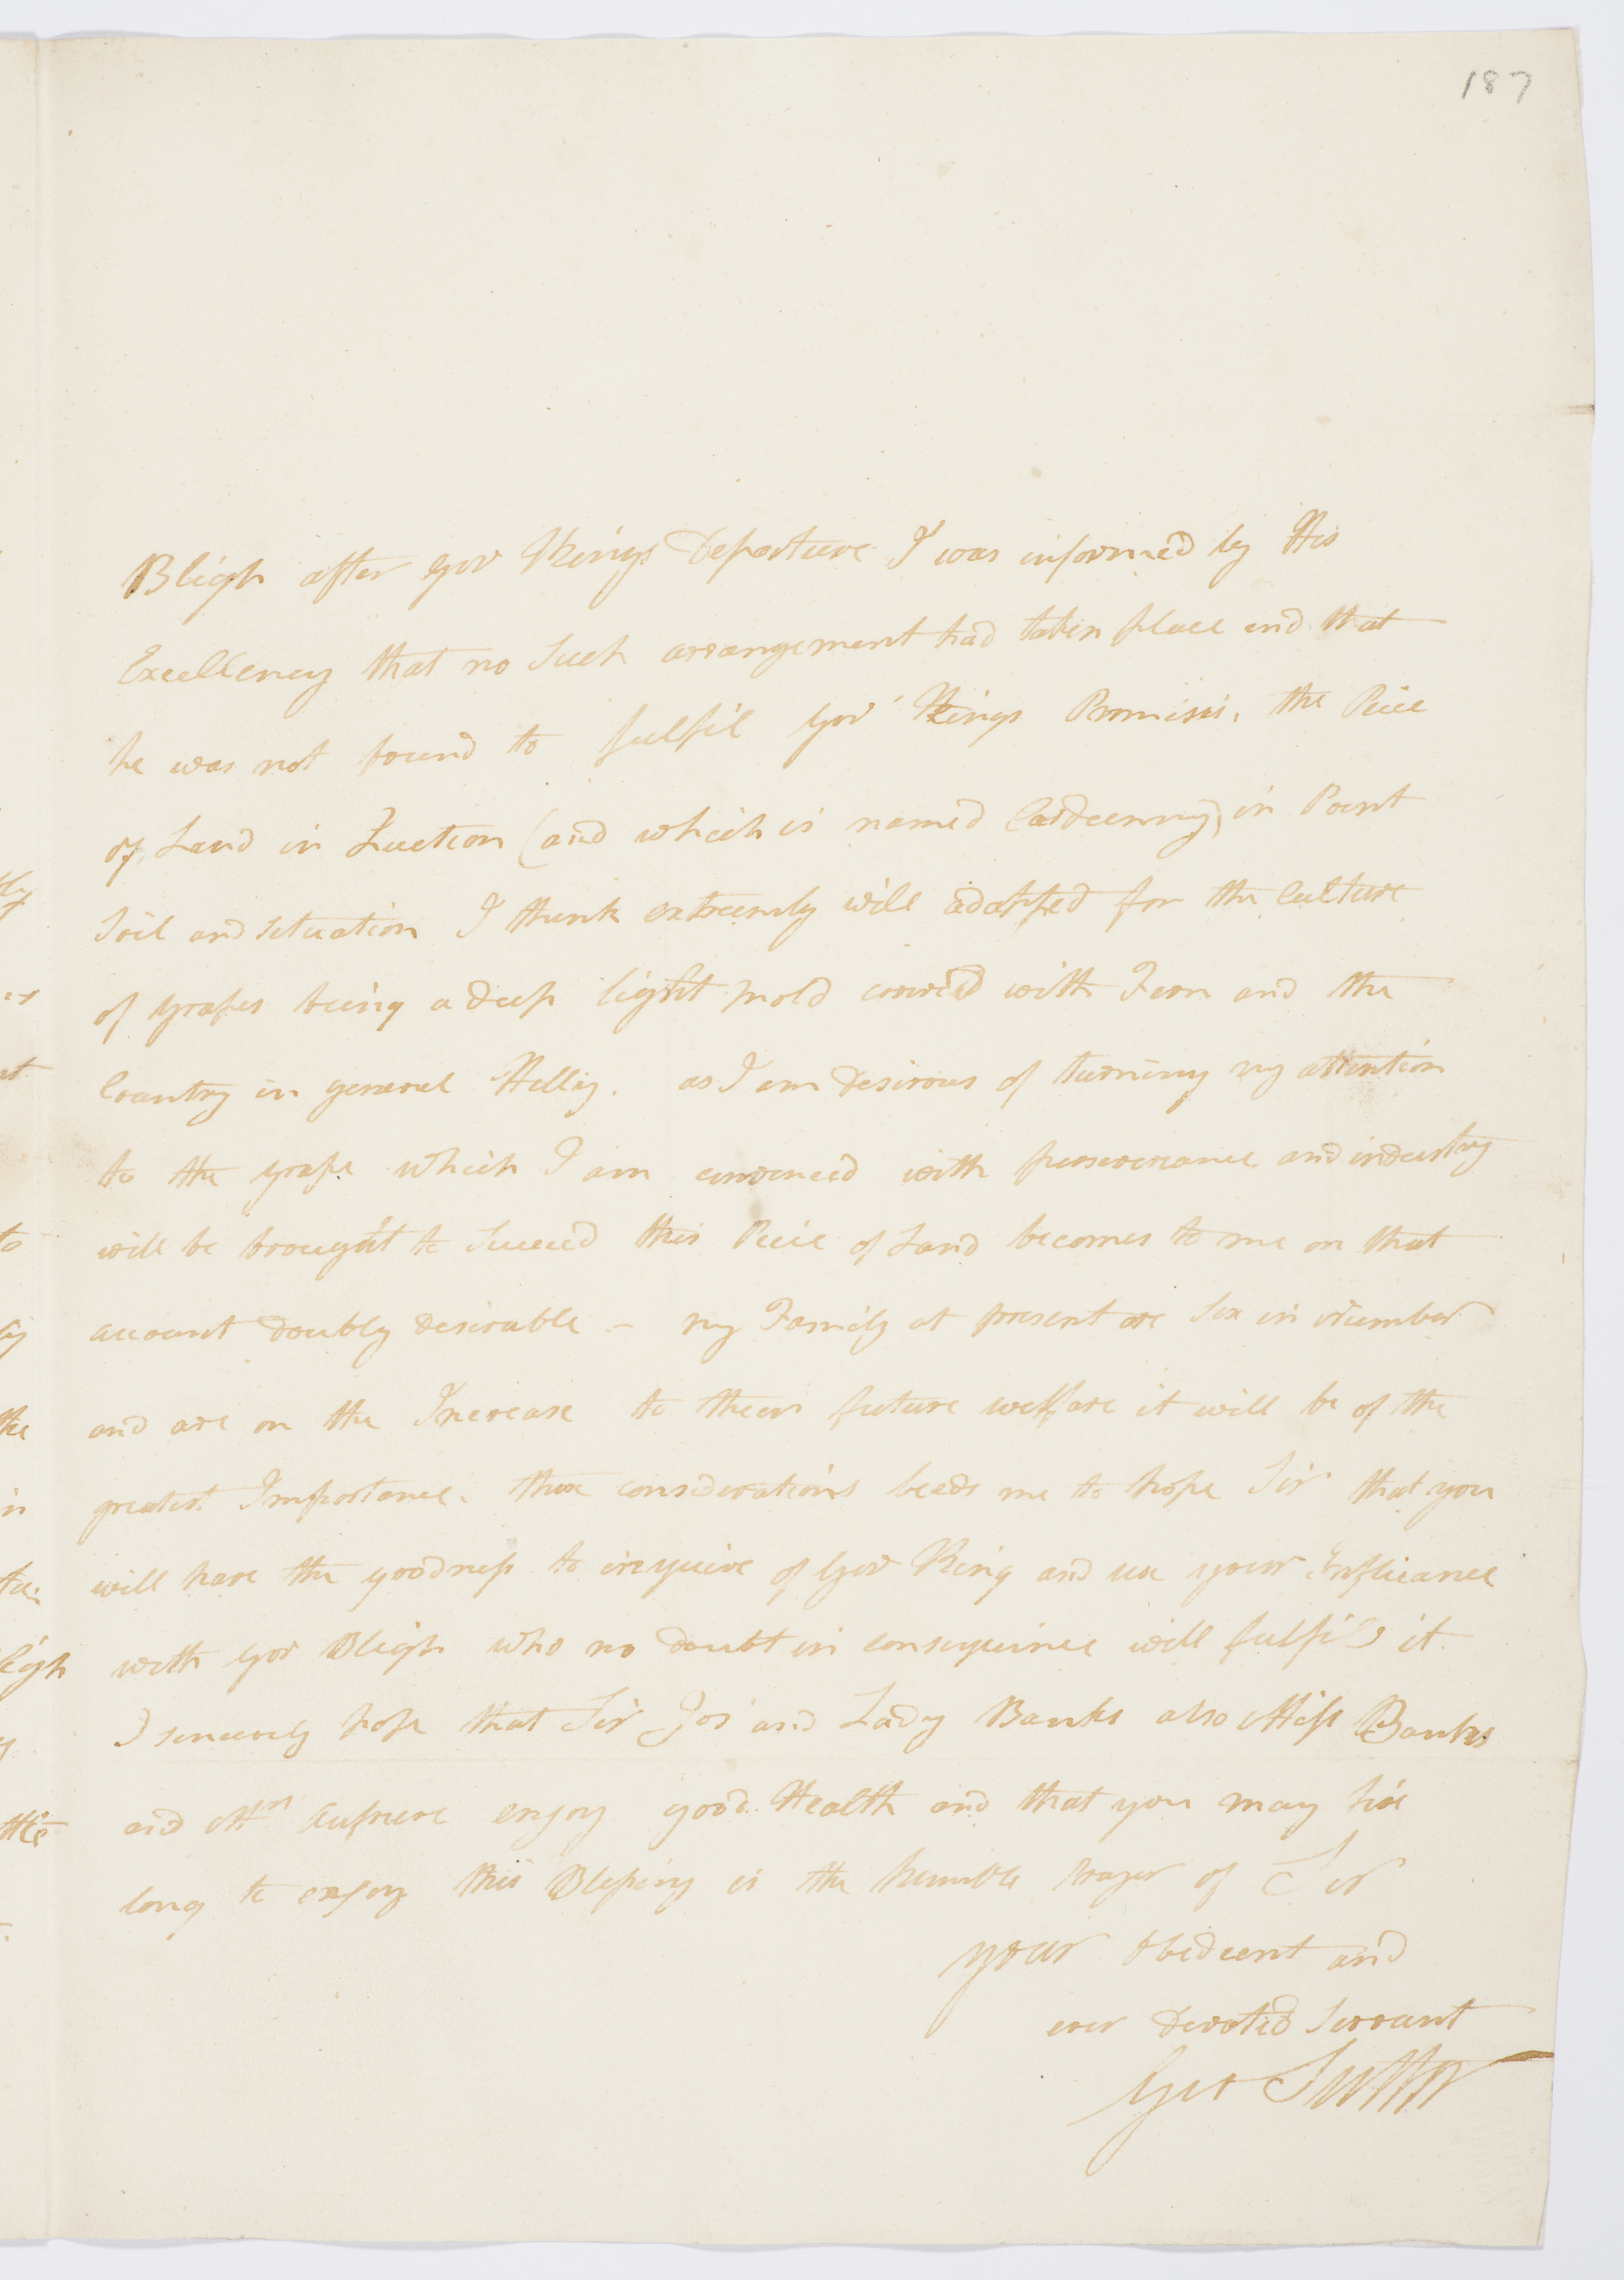 187
Bligh after Gov Kings Departure I was informed by His
Excellency that no Such arrangement had taken place and that
he was not bound to fulfil Gov Kings Promises, the Peice
of Land in Question (and which is named in Point
Soil and Situation I think extreemly well adapted for the Culture
of Grapes being a deep light mold covered with Fern and the
Country in general Hilly. as I am desirous of turning my attention
to the grape which I am convinced with perseverance and industry
will be brought to Succeed this Peice of Land becomes to me on that
account doubly desirable - my Family at present are Six in Number
and are on the Increase to them future welfare it will be of the
greatest Importance. these considerations leads me to hope Sir that you
will have the goodness to inquire of Gov King and use your Influence
with Gov Bligh who no doubt in consequence will fulfil it
I sincerely hope that Sir Jos and Lady Banks also Miss Banks
and enjoy good Health and that you may live
long to enjoy this Blessing is the humble prayer of Sir
your obedient and
ever devoted Servant
Geo Suttor